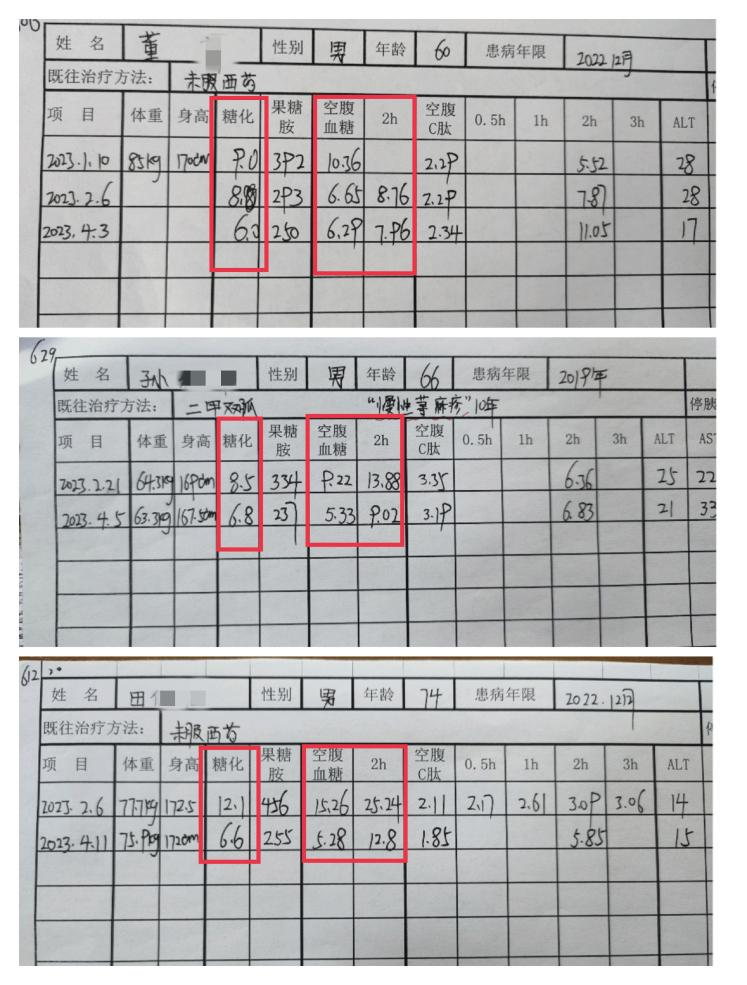 姓 名 董 性别 男 年龄 60 患病年限 2022.12月
既往治疗方法: 未服西药
项 目 体重 身高 糖化 果糖胺 空腹血糖 2h 空腹C肽 0.5h 1h 2h 3h ALT
2023.1.10 85kg 170cm 9.0 392 10.36 2.29 5.52 28
2023.2.6 293 6.65 8.76 2.29 7.87 28
2023.4.3 250 6.29 7.96 2.34 11.05 17
629
姓 名 孙 性别 男 年龄 66 患病年限 2019年
既往治疗方法: 二甲双胍 "慢性荨麻疹"10年 停胰
项 目 体重 身高 糖化 果糖胺 空腹血糖 2h 空腹C肽 0.5h 1h 2h 3h ALT AS
2023.2.21 64.3kg 169cm 8.5 334 9.22 13.88 3.35 6.36 25 22
2023.4.5 63.3kg 167.5cm 6.8 237 5.33 9.02 3.19 6.83 21 33
612
姓 名 田 性别 男 年龄 74 患病年限 2022.12月
既往治疗方法: 未服西药
项 目 体重 身高 糖化 果糖胺 空腹血糖 2h 空腹C肽 0.5h 1h 2h 3h ALT
2023.2.6 77.7kg 172.5 12.1 456 15.26 25.24 2.11 2.17 2.61 3.09 3.06 14
2023.4.11 75.9kg 172cm 6.6 255 5.28 12.8 1.85 5.85 15